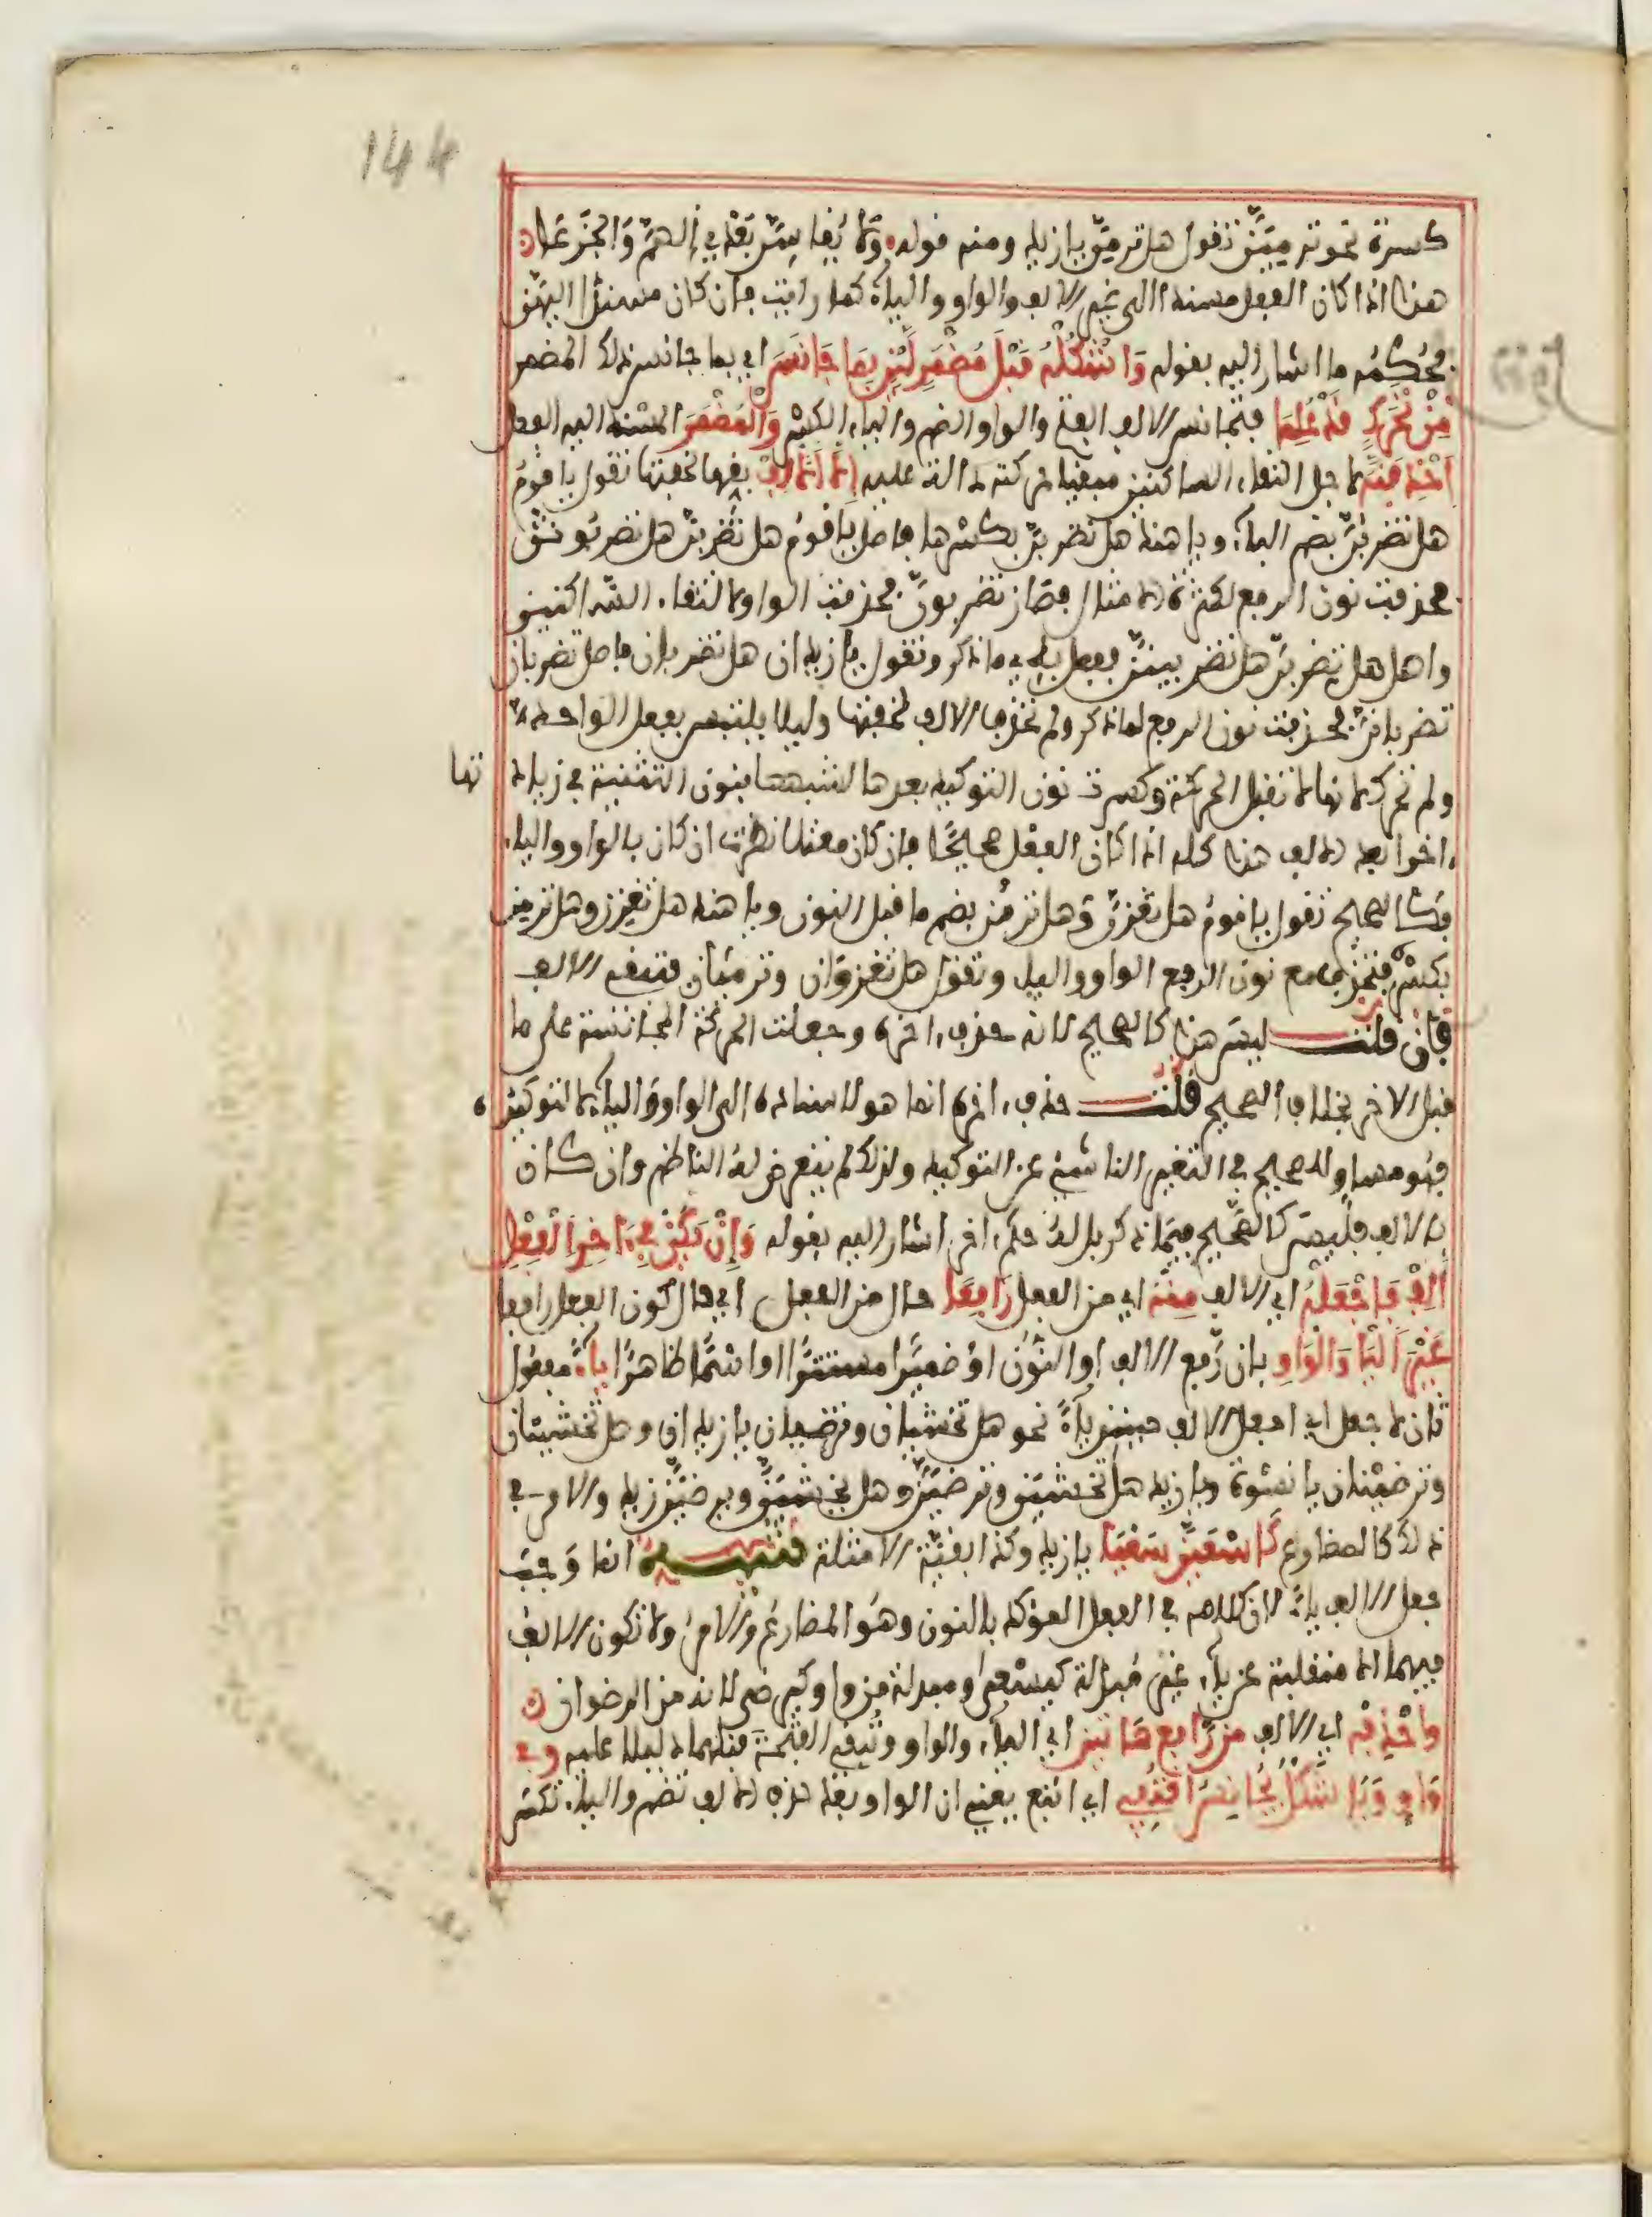 144
كسرة نحو ترمين تقول هل ترمين يا زيد ومنه قوله ولا يقا بعد في الهم والجزعا
هذا اذا كان الفعل مسندا الى غير الالف والواو والياء كما رايت فان كان مسندا اليهن
فحكمه ما اشار اليه بقوله وَاشْكُلْهُ قَبْلَ مُضْمَرٍ لَيْنٍ بِمَا جَانَسَ اي بما جانس ذلك المضمر
مِنْ تَحَرُّكٍ قَدْ عُلِمَا فتجانس الالف الفتح والواو الضم والياء الكسر وَالْمُضْمَرَ المسند اليه الفعل
احْذِفَنَّهُ لاجل التقاء الساكنين مبقيا حركته دالة عليه إلا الألف بقها لخفتها تقول يا قوم
هل تضربُنّ بضم الباء ويا هند هل تضربِنّ بكسرها فاصل يا قوم هل تضربن هل تضربونن
فحذفت نون الرفع لكثرة الامثال فصار تضربونّ فحذفت الواو لالتقاء الساكنين
واصل هل تضربن هل تضربينن ففعل به ما ذكر وتقول يا زيدان هل تضربان فاصل تضربان
تضرباننّ فحذفت نون الرفع لما ذكر ولم تحذف الالف لخفتها وليلا يلتبس بفعل الواحد
ولم تحرك لانها لا تقبل الحركة وكسرت نون التوكيد بعدها لشبهها بنون التثنية في زيادتها
اخرا بعد الف هذا كله اذا كان الفعل صحيحا فان كان معتلا نظرت ان كان بالواو والياء
فكالصحيح تقول يا قوم هل تغزن وهل ترمن بضم ما قبل النون ويا هند هل تغزن وهل ترمن
بكسره فتحذف مع نون الرفع الواو والياء وتقول هل تغزوان وترميان فتبقى الالف
فإن قلت ليس هذا كالصحيح لانه حذف اخره وجعلت الحركة المجانسة على ما
قبل الاخر بخلاف الصحيح قلت حذف اخره انما هو لاسناده الى الواو والياء لا لتوكيده
فهو مساو للصحيح في التغيير الناشئ عن التوكيد ولذلك لم يتعرض له الناظم وان كان
بالالف فليس كالصحيح فيما ذكر بل له حكم اخر اشار اليه بقوله وَإِنْ يَكُنْ فِي آخِرِ الْفِعْلِ
أَلِفْ فَاجْعَلْهُ اي الالف مِنْهُ اي من الفعل رَافِعًا حال من الفعل اي حال كون الفعل رافعا
غَيْرَ الْيَا وَالْوَاوِ بان رفع الالف او النون او ضميرا مستترا او اسما ظاهرا يَاءً مفعول
ثان لاجعل اي اجعل الالف حينئذ ياء نحو هل تخشيان وترضيان يا زيدان وهل تخشينان
وترضينان يا نسوة ويا زيد هل تخشين وترضين وهل يخشين ويرضين زيد والامر في
ذلك كالمضارع كَاسْعَيَنَّ سَعْيَا يا زيد وكذا بقية الامثلة تنبيه انما وجب
جعل الالف ياء لان كلامه في الفعل المؤكد بالنون وهو المضارع والامر ولا تكون الالف
فيهما الا منقلبة عن ياء غير مبدلة كيسعى ومبدلة من واو كيرضى لانه من الرضوان
واحْذِفْهُ اي الالف مِنْ رَافِعِ هَاتَيْنِ اي الياء والواو وتبقى الفتحة قبلهما دليلا عليه وَفِي
وَاوٍ وَيَا شَكْلٌ مُجَانِسٌ قُفِي اي اتبع يعني ان الواو بعد حذف الالف تضم والياء تكسر